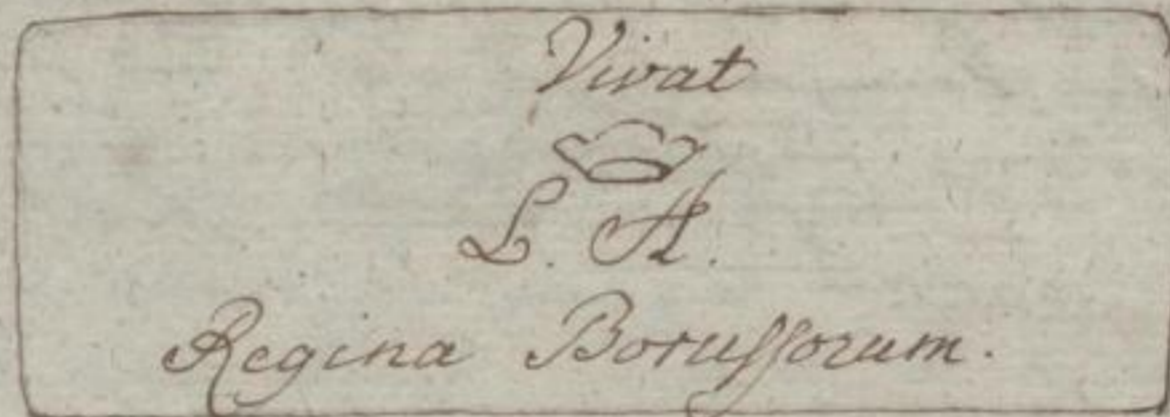 Vivat
L. A.
Regina Boruſſorum.